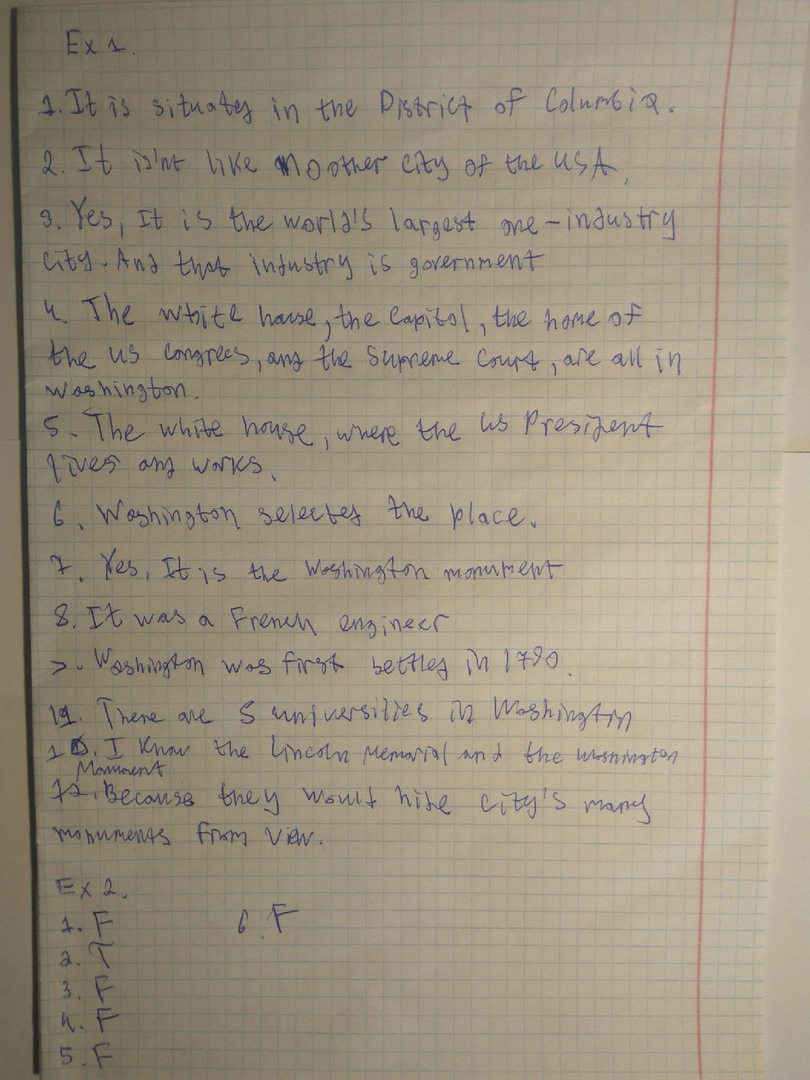 Ex 1.
1. It is situated in the District of Columbia.
2. It is'nt like no other city of the USA,
3. Yes, It is the world's largest one-industry
city. And that industry is government
4. The white house, the Capitol, the home of
the US Congrees, and the Supreme Court, are all in
washington.
5. The white house, where the US President
lives and works.
6. Washington selected the place.
7. Yes, It is the Washington monument
8. It was a French engineer
9. Washington was first settled in 1790.
11. There are 5 universities in Washington
10. I know the Lincoln Memorial and the washington
Monument
12. Because they would hide city's many
monuments from view.
Ex 2.
1. F 6. F
2. T
3. F
4. F
5. F